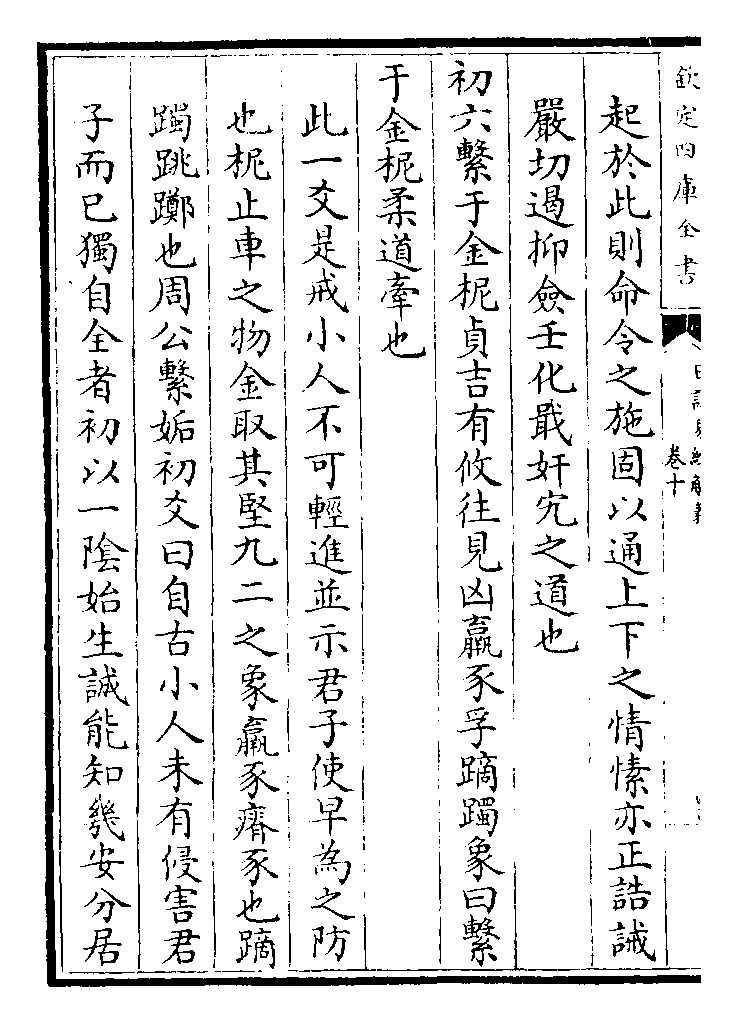 欽定四庫全書
卷十
起於此則命令之施固以通上下之情愫亦正誥誡
嚴切遏抑僉壬化戢奸宄之道也
初六繫于金柅貞吉有攸往見凶羸豕孚蹢躅象曰繫
于金柅柔道牽也
此一爻是戒小人不可輕進並示君子使早為之防
也柅止車之物金取其堅九二之象羸豕瘠豕也蹢
躅跳躑也周公繫姤初爻曰自古小人未有侵害君
子而已獨自全者初以一陰始生誠能知幾安分居